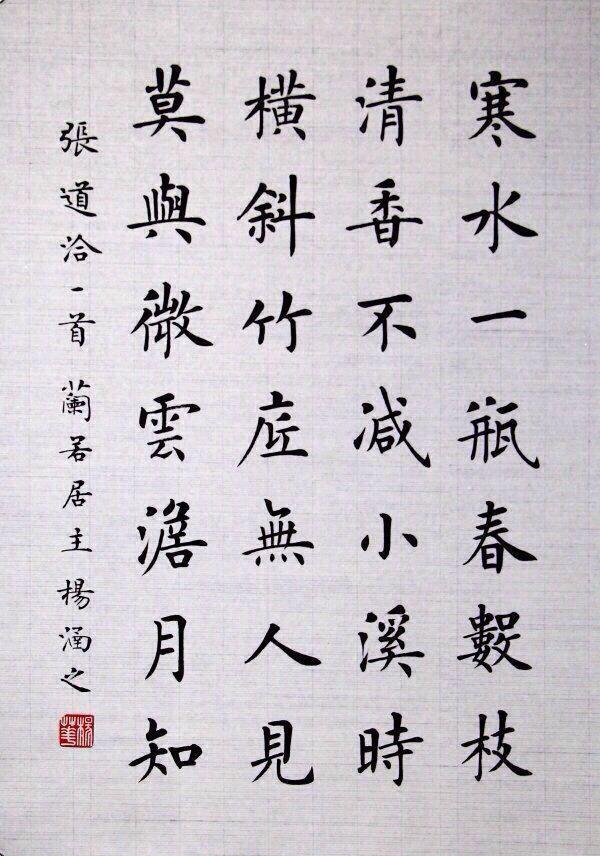 寒水一瓶春數枝
清香不減小溪時
橫斜竹底無人見
莫與微雲澹月知
張道洽一首 蘭若居主楊涵之